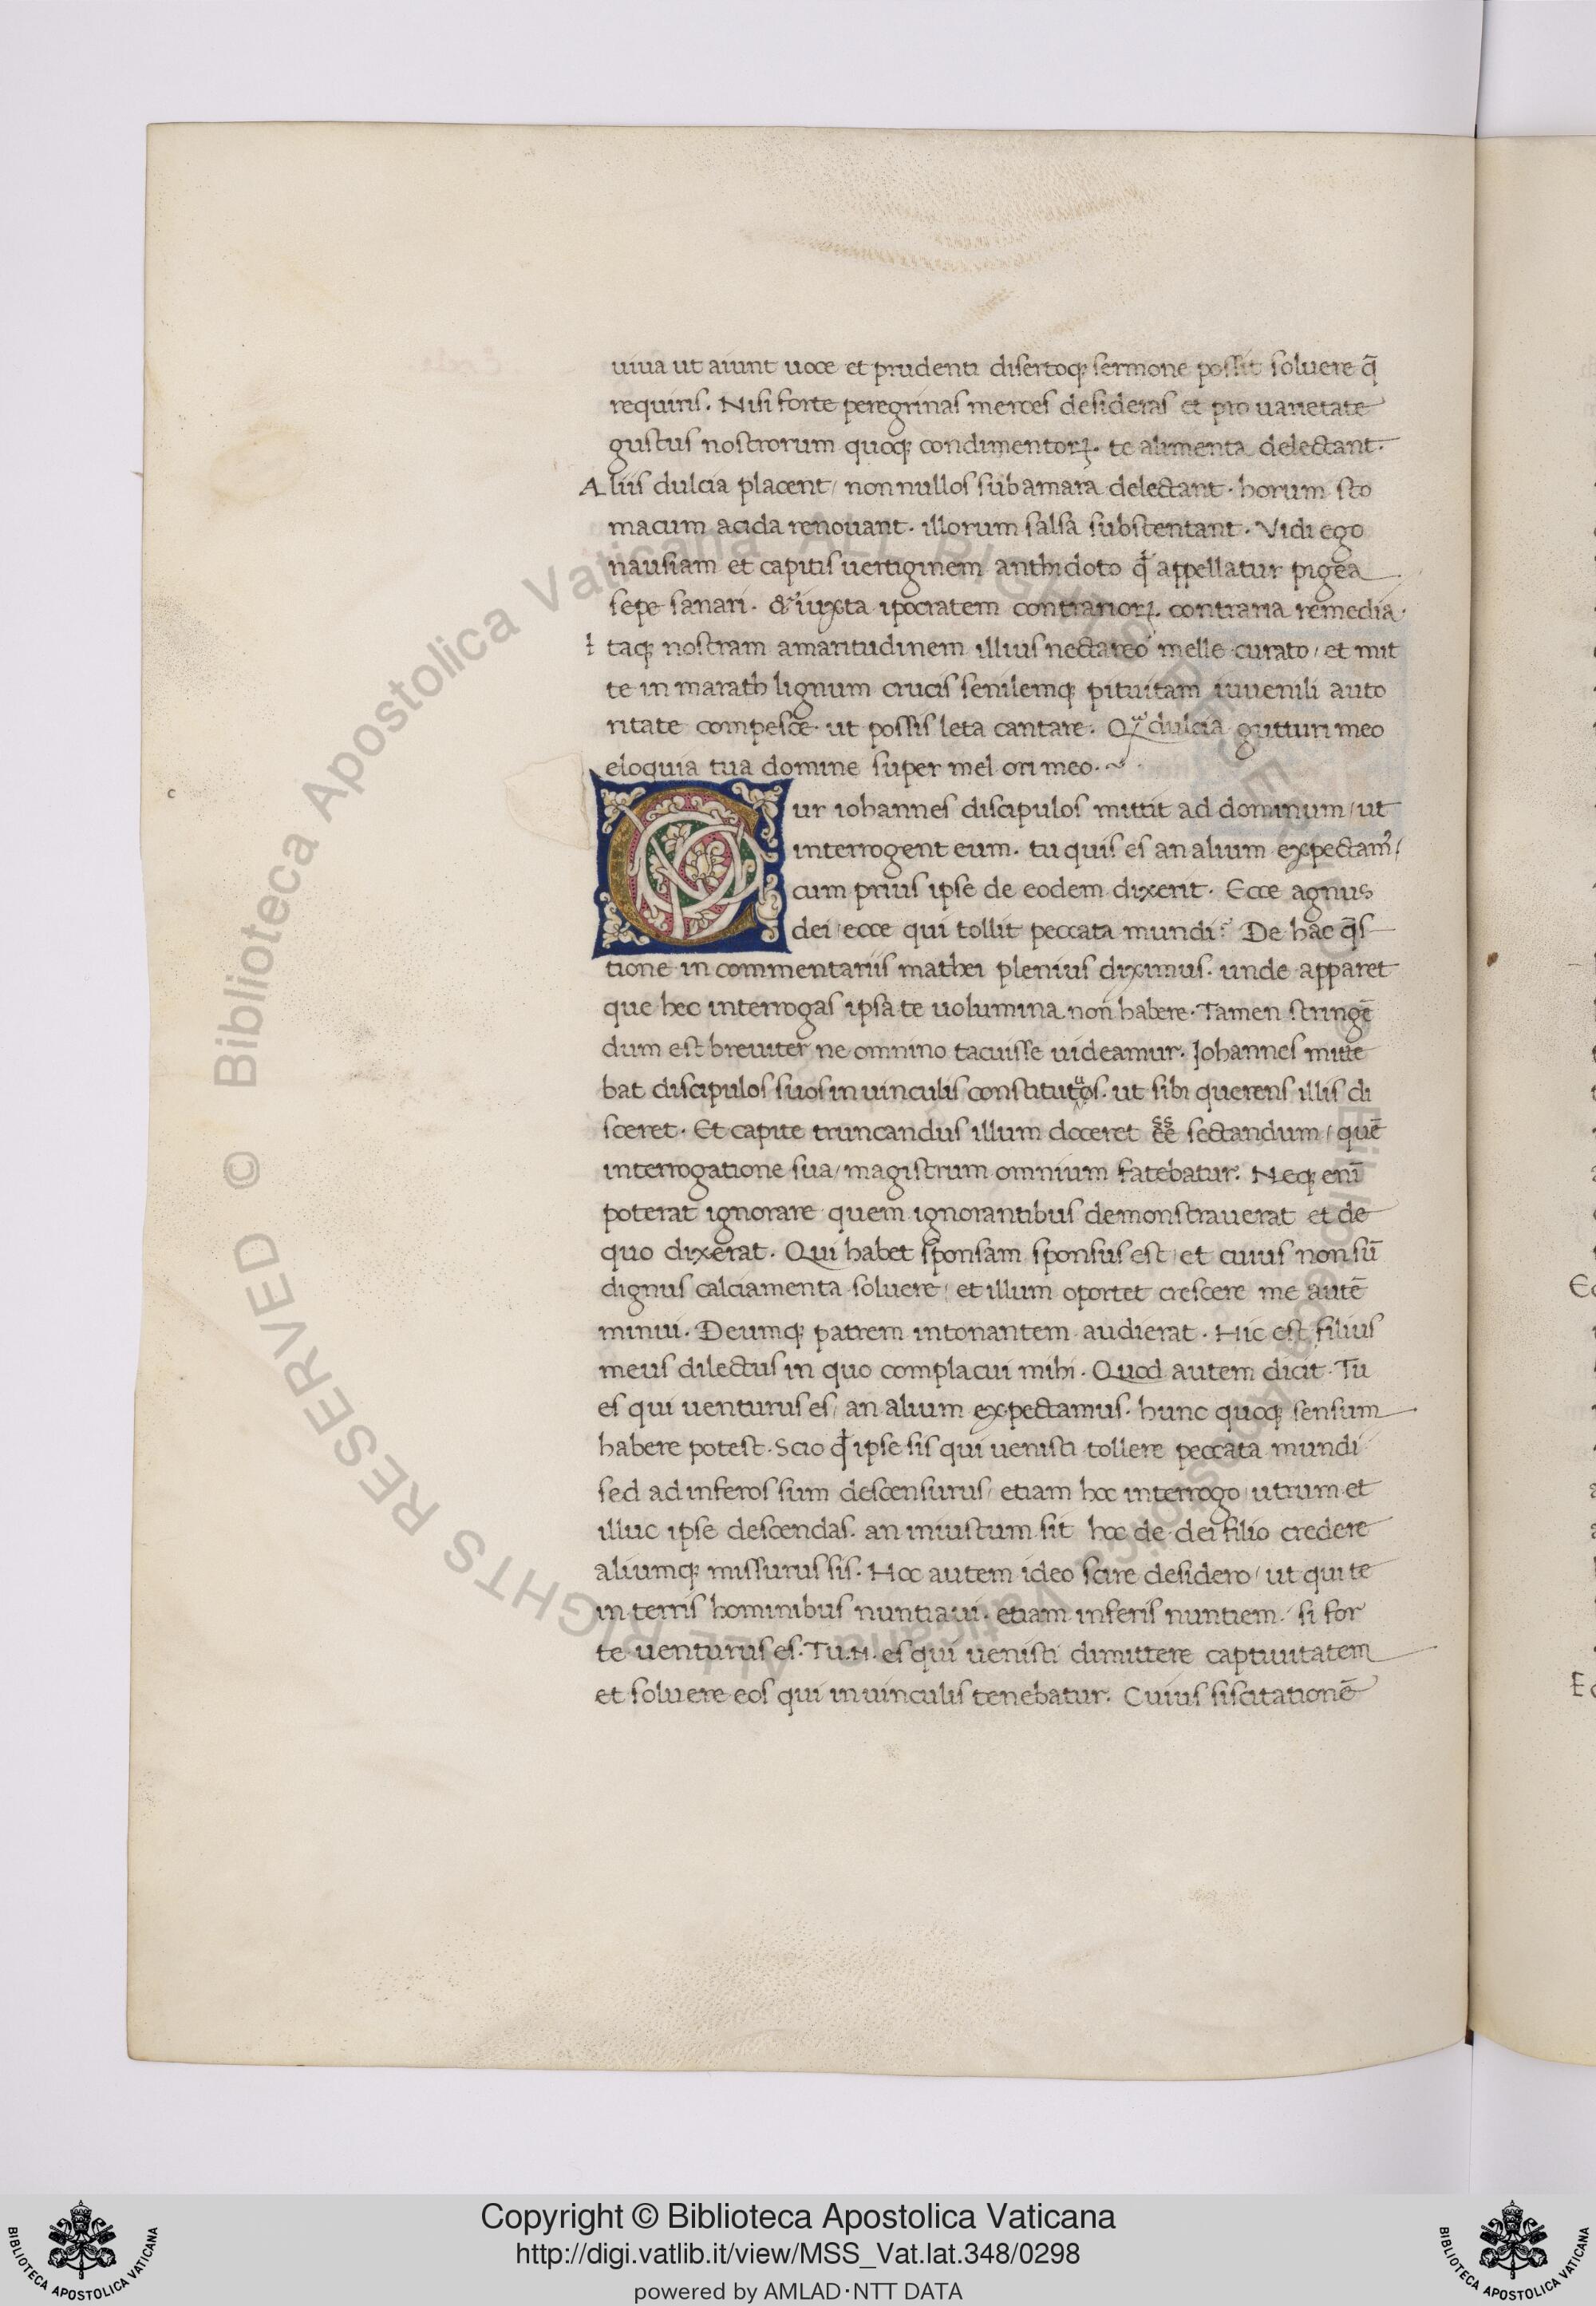 uiua ut aiunt uoce et prudenti disertoq; sermone possit soluere q̄
requiris. Nisi forte peregrinas merces desideras et pro uarietate
gustus nostrorum quoq; condimentoꝝ. te alimenta delectant.
Aliis dulcia placent / non nullos subamara delectant. horum sto
macum acida renouant. illorum salsa substentant. Vidi ego
nausiam et capitis uertiginem anthidoto q̄ appellatur pigēa
sepe sanari. & iuxta ipocratem contrarioꝝ. contraria remedia.
taq; nostram amaritudinem illius nectareo melle curato / et mit
te in marath lignum crucis senilemq; pituitam iuuenili auto
ritate compesce. ut possis leta cantare. Qᷓ dulcia gutturi meo
eloquia tua domine super mel ori meo.~
c
Cur iohannes discipulos mittit ad dominum / ut
interrogent eum. tu quis es an alium expectamꝰ /
cum prius ipse de eodem dixerit. Ecce agnus
dei / ecce qui tollit peccata mundi? De hac q̄s
tione in commentariis mathei plenius diximus. unde apparet
que hec interrogas ipsa te uolumina non habere. Tamen stringē
dum est breuiter ne omnino tacuisse uideamur. Johannes mitte
bat discipulos suos in uinculis constitutos. ut sibi querens illis di
sceret. Et capite truncandus illum doceret eē sectandum / quē
interrogatione sua / magistrum omnium fatebatur. Neq; enī
poterat ignorare quem ignorantibus demonstrauerat et de
quo dixerat. Qui habet sponsam sponsus est / et cuius non sū
dignus calciamenta soluere / et illum oportet crescere me autē
minui. Deumq; patrem intonantem audierat. Hic est filius
meus dilectus in quo complacui mihi. Quod autem dicit. Tu
es qui uenturus es / an alium expectamus. hunc quoq; sensum
habere potest. Scio ꝙ ipse sis qui uenisti tollere peccata mundi
sed ad inferos sum descensurus / etiam hoc interrogo / utrum et
illuc ipse descendas. an iniustum sit hoc de dei filio credere
aliumq; missurus sis. Hoc autem ideo scire desidero / ut qui te
in terris hominibus nuntiaui. etiam inferis nuntiem / si for
te uenturus es. Tu .n. es qui uenisti dimittere captiuitatem
et soluere eos qui in uinculis tenebatur. Cuius siscitationē
© Biblioteca Apostolica Vaticana ALL RIGHTS RESERVED
Copyright © Biblioteca Apostolica Vaticana
http://digi.vatlib.it/view/MSS_Vat.lat.348/0298
powered by AMLAD·NTT DATA
BIBLIOTECA APOSTOLICA VATICANA
BIBLIOTECA APOSTOLICA VATICANA